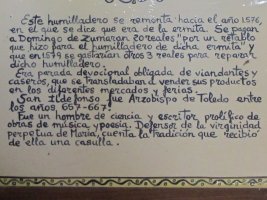 Este humilladero se remonta hacia el año 1576,
en el que se dice que era de la ermita. Se pagan
a Domingo de Zumarón 60 reales "por un retablo
que hizo para el humilladero de dicha ermita" y
que en 1579 se gastarían otros 3 reales para reparar
dicho humilladero.
Era parada devocional obligada de viandantes y
caseros, que se transladaban a vender sus productos
en los diferentes mercados y ferias.
San Ildefonso fue Arzobispo de Toledo entre
los años, 657-667!
Fue un hombre de ciencia y escritor prolífico de
obras de música y poesía. Defensor de la virginidad
perpetua de María, cuenta la tradición que recibió
de ella una casulla.